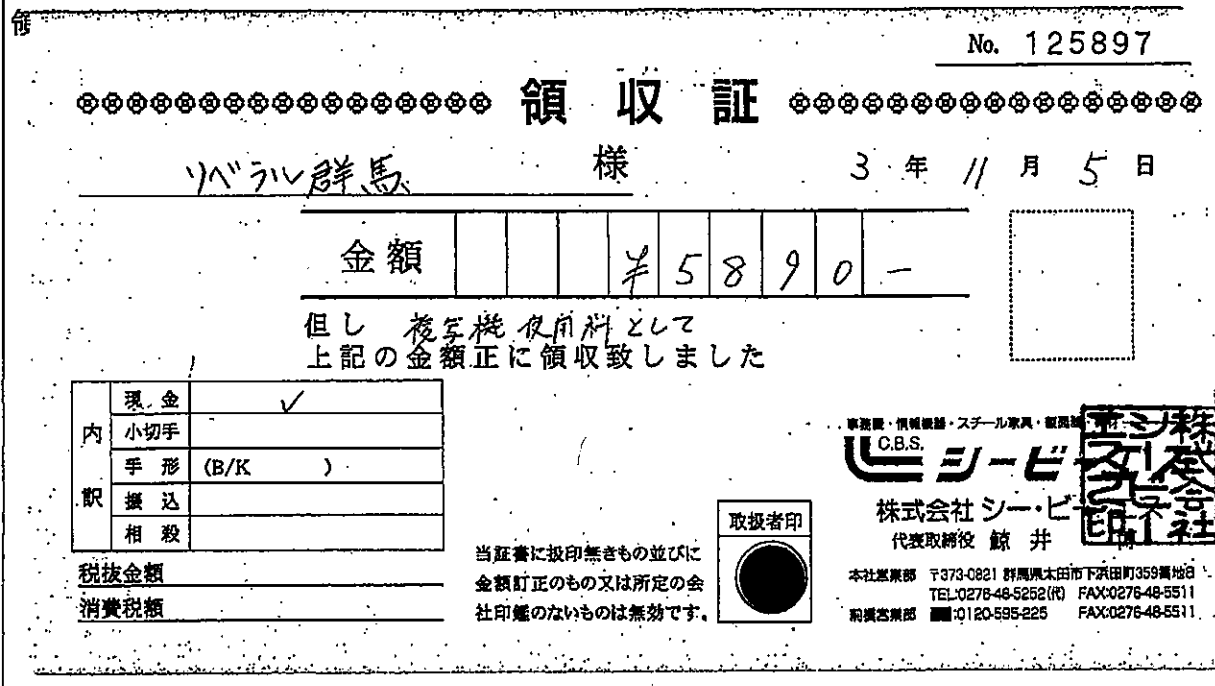 No. 125897
領収証
リベラル群馬 様
3年11月5日
金額 ¥5890-
但し 複写機使用料として
上記の金額正に領収致しました
内訳
現金 ✓
小切手
手形 (B/K )
振込
相殺
税抜金額
消費税額
当証書に扱印無きもの並びに
金額訂正のもの又は所定の会
社印鑑のないものは無効です。
取扱者印
事務機・情報機器・スチール家具・
C.B.S.
シービー
株式会社 シー・ビー
代表取締役 鯨井
本社営業部 〒373-0821 群馬県太田市下浜田町359番地8
TEL:0276-48-5252(代) FAX:0276-48-5511
前橋営業部 :0120-595-225 FAX:0276-48-5511